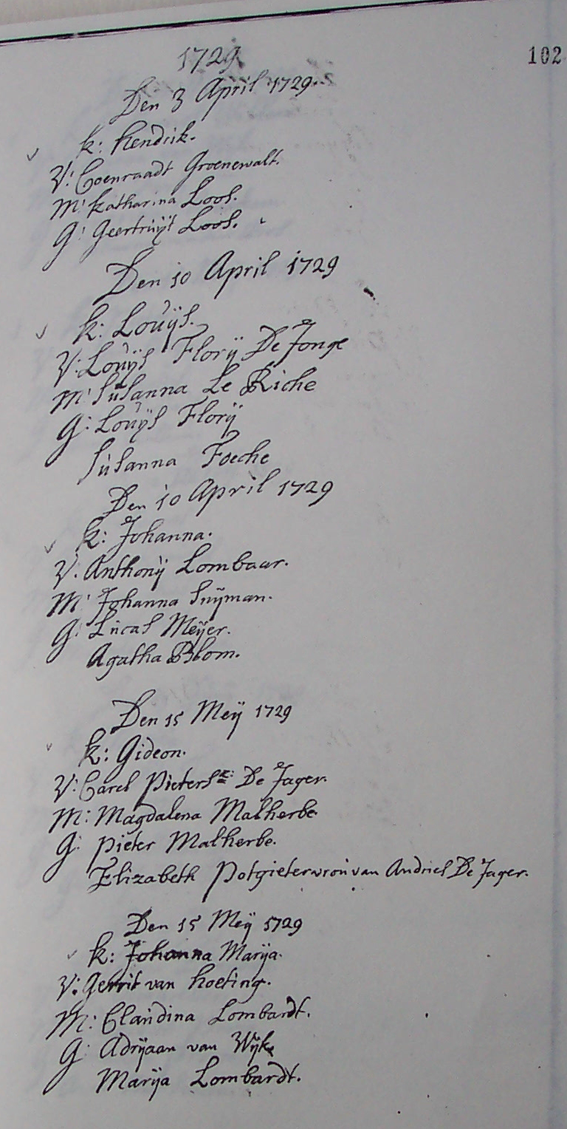 102
1729
Den 3 April 1729.
k: Hendrik.
V: Coenraadt Groenewalt.
M: Katharina Loos.
G: Geertruijt Loos.
Den 10 April 1729
k: Louijs.
V: Louijs Florij De Jonge
M: Susanna Le Riche
G: Louijs Florij
Susanna Foeche
Den 10 April 1729
k: Johanna.
V: Anthonij Lombaar.
M: Johanna Snijman.
G: Lucas Meijer.
Agatha Blom.
Den 15 Meij 1729
k: Gideon.
V: Carel Pieters: De Jager.
M: Magdalena Malherbe
G: Pieter Malherbe.
Elizabeth Potgieter vrou van Andries De Jager.
Den 15 Meij 1729
k: Johanna Marija.
V: Gerrit van hoeting.
M: Claudina Lombardt.
G: Adrijaan van Wijk
Marija Lombardt.